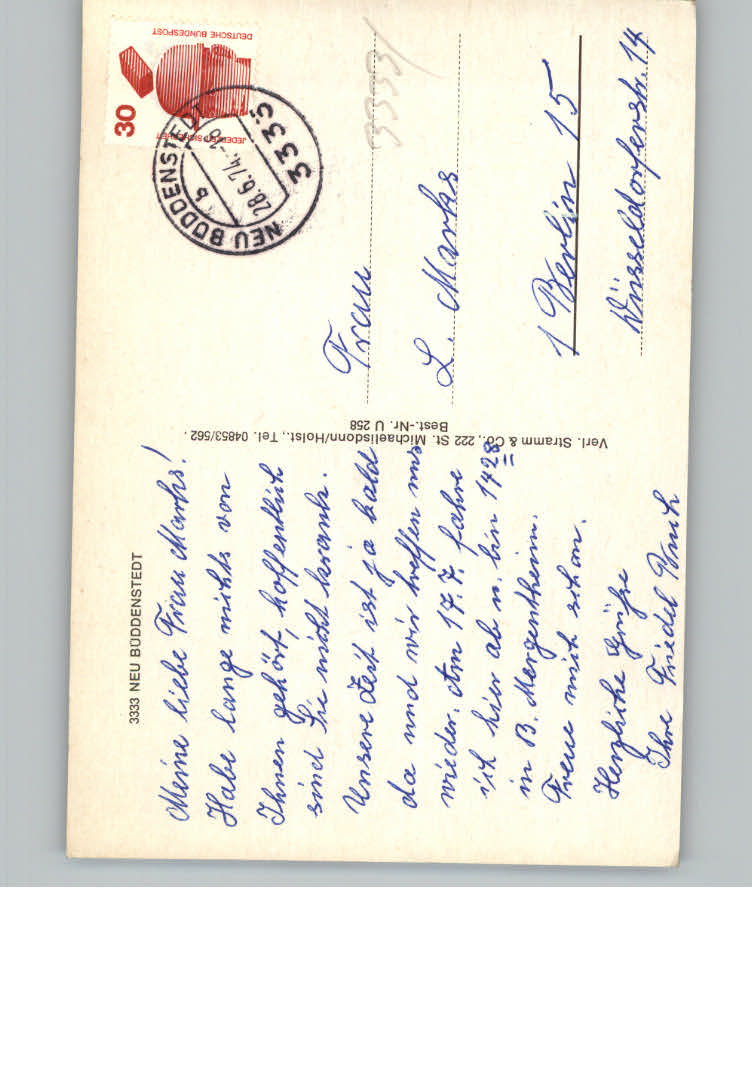 3333 NEU BÜDDENSTEDT
Meine liebe Frau Marks!
Habe lange nichts von
Ihnen gehört, hoffentlich
sind Sie nicht krank.
Unsere Zeit ist ja bald
da und wir treffen uns
wieder. Am 17.7. fahre
ich hier ab u. bin 1428
in B. Mergentheim.
Freue mich schon.
Herzliche Grüße
Ihre Friedel
Verl. Stramm & Co., 222 St. Michaelisdonn/Holst., Tel. 04853/562.
Best.-Nr. U 258
DEUTSCHE BUNDESPOST
30
JEDERZEIT SICHERHEIT
NEU BÜDDENSTEDT
b
28.6.74.
3333
3333/
Frau
L. Marks
1 Berlin 15
Düsseldorferstr. 14